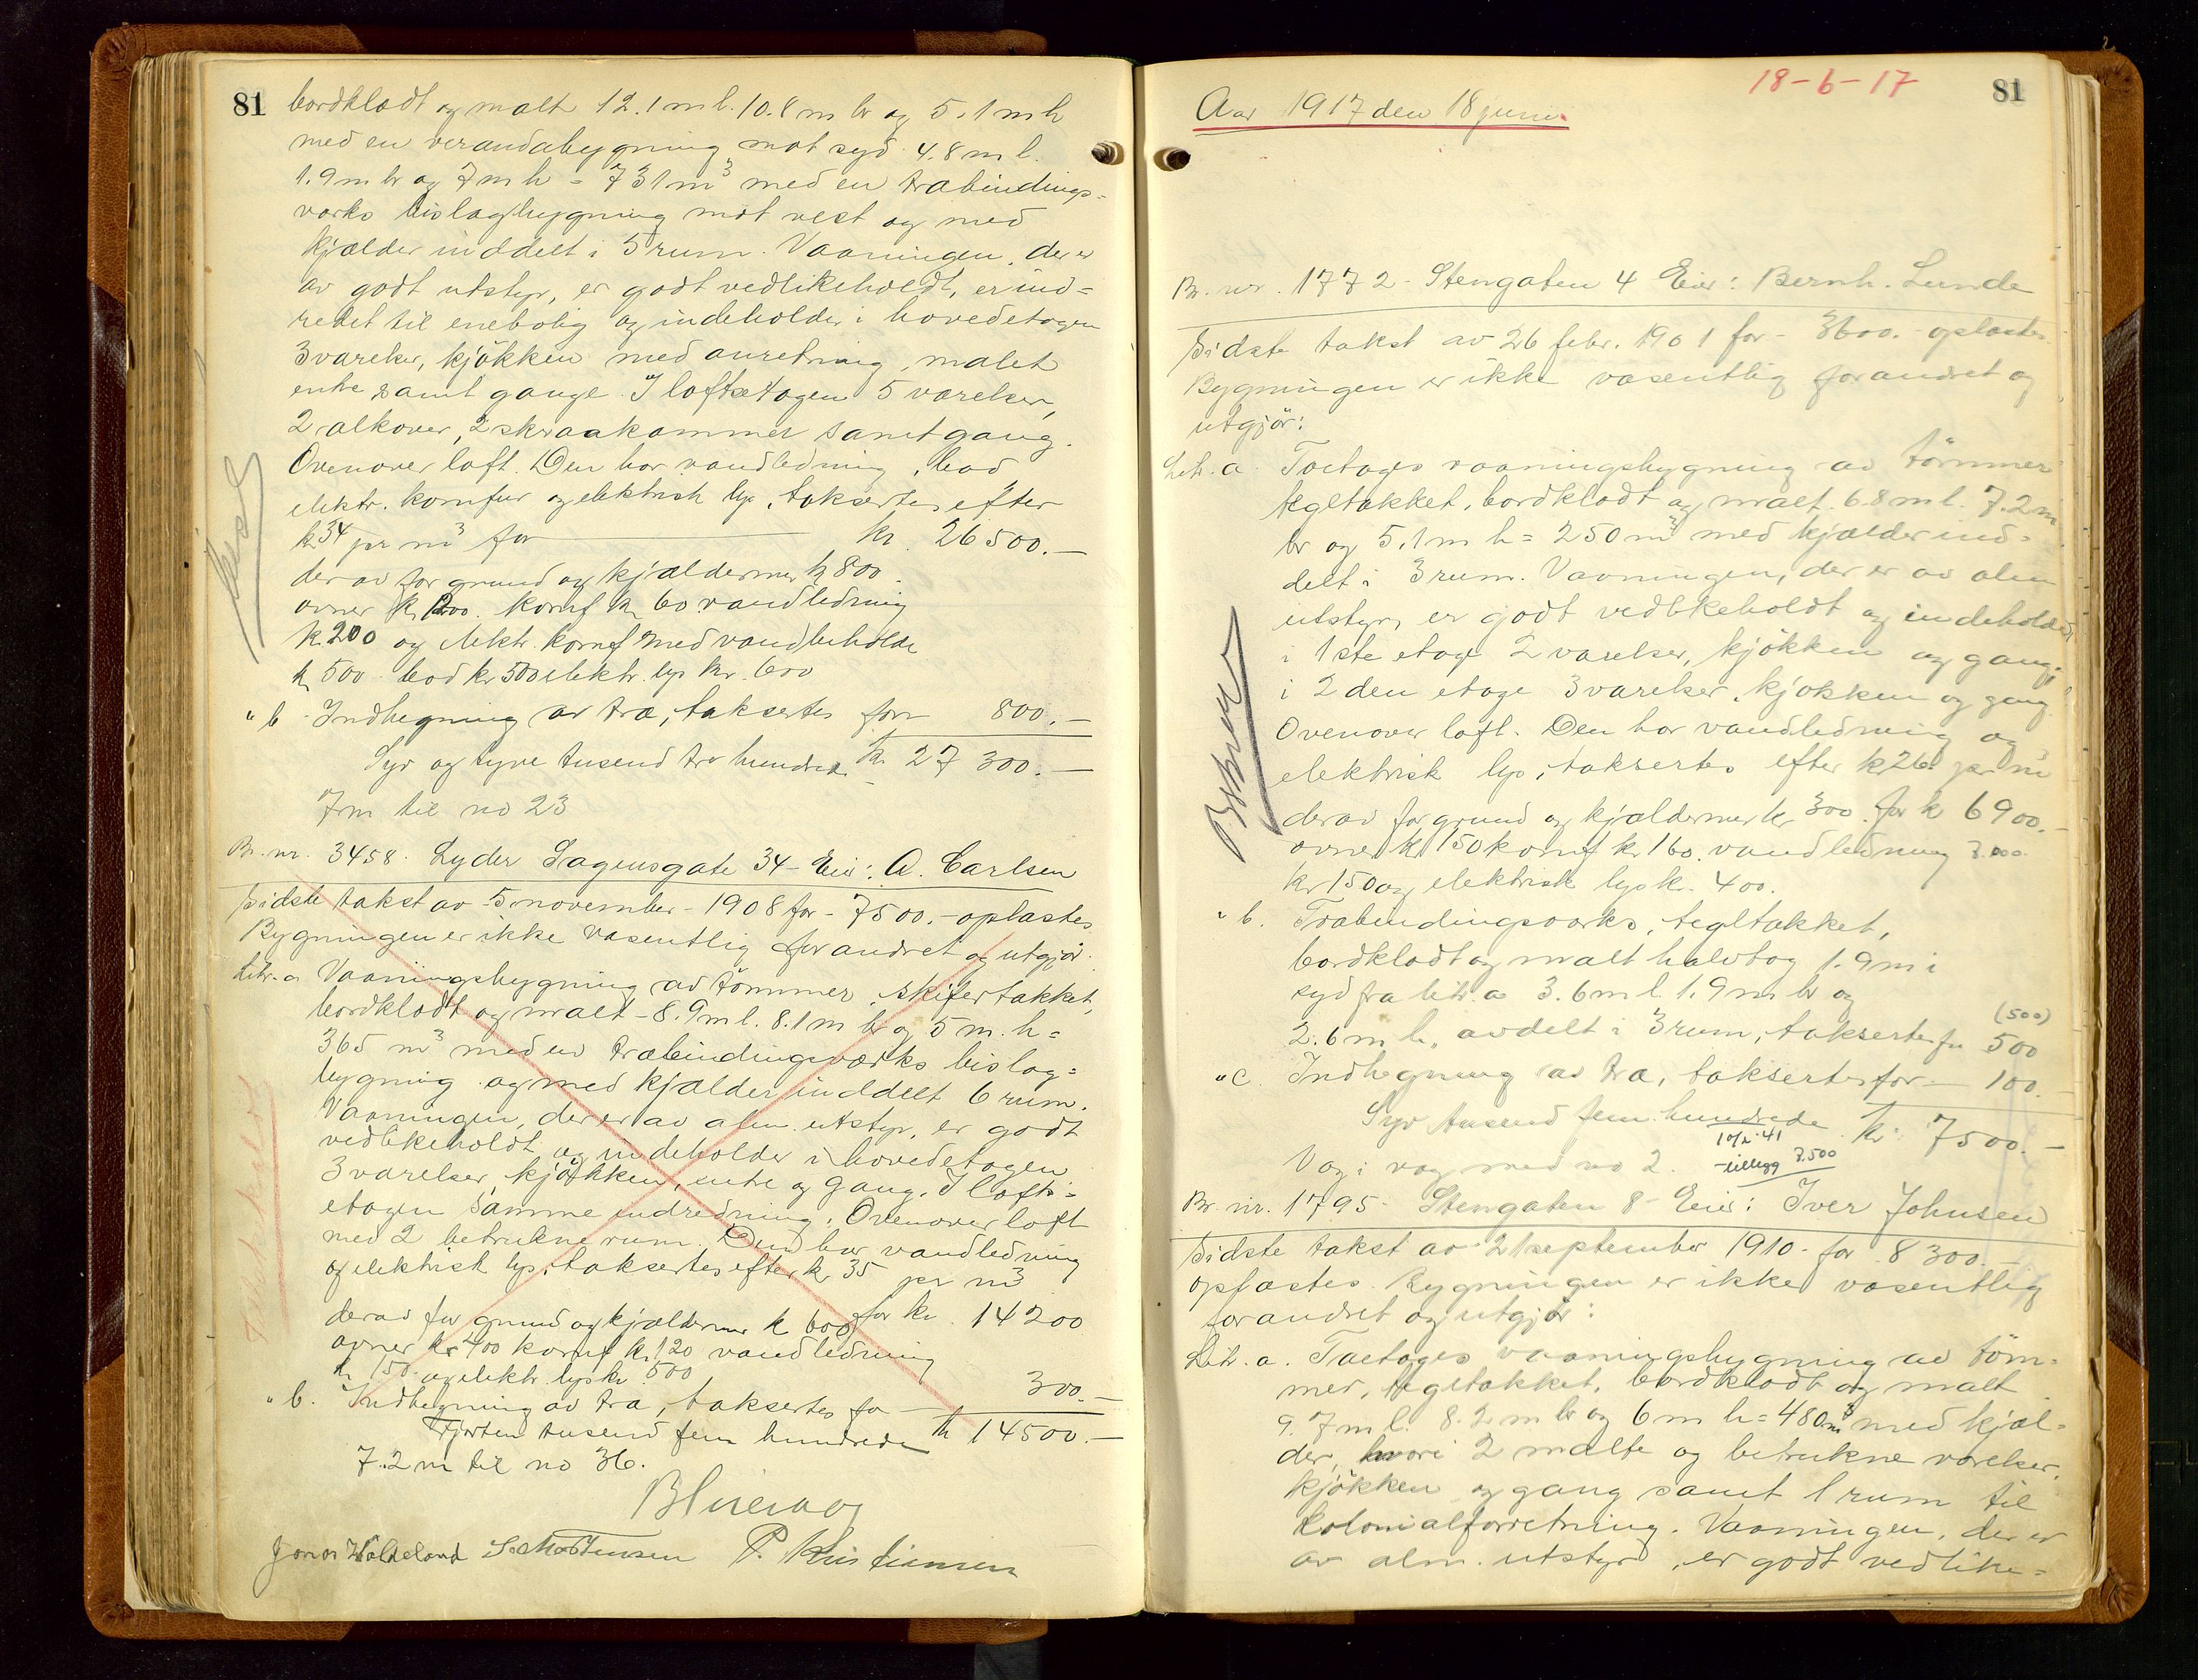 81
bordklædt og malt 12.1 m l. 10.8 m br og 5.1 m h
med en verandabygning mot syd 4.8 m l.
1.9 m br og 7 m h = 731 m³ med en træbindings=
værks bislagbygning mot vest og med
kjælder inddelt i 5 rum. Vaaningen, der er
av godt utstyr, er godt vedlikeholdt, er ind=
redet til enebolig og indeholder i hovedetagen
3 værelser, kjökken med anretning, malet
entre samt gange. I loftsetagen 5 værelser,
2 alkover, 2 skraakammer samt gang.
Ovenover loft. Den har vandledning, bad
elektr. komfur og elektrisk lys, taksertes efter
kr 34 pr m³ for kr. 26500.—
derav for grund og kjældermur kr 800.
ovner kr 1200. komf kr 60 vandledning
kr. 200 og elektr. komf med vandbeholder
kr 500 bad kr 500 elektr. lys kr. 600
" b Indhegning av træ, taksertes for 800.—
Syv og tyve tusend tre hundrede kr 27 300.—
7 m til no 23
Br. nr. 3458. Lyder Sagensgate 34 - Eier: A. Carlsen
Sidste takst av 5 november - 1908 for - 7500.- oplæstes
Bygningen er ikke væsentlig forandret og utgjør.
Litr. a Vaaningsbygning av tömmer, skifertakket,
bordklædt og malt - 8.9 m l. 8.1 m br og 5 m. h =
365 m³ med en træbindingsværks bislag=
bygning og med kjælder inddelt 6 rum.
Vaaningen, der er av alm utstyr, er godt
vedlikeholdt og indeholder i hovedetagen
3 værelser, kjökken, entre og gang. I lofts=
etagen samme indredning. Ovenover loft
med 2 betrukne rum. Den har vandledning
og elektrisk lys, taksertes efter kr 35 pr m³
for kr. 14200
derav for grund og kjældermur kr 600
ovner kr 400 komf kr. 120 vandledning
kr 150. og elektr. lys kr 500
" b. Indhegning av træ, taksertes for 300.—
Fjorten tusend fem hundrede kr 14500.—
7.2 m til no 36.
S. Mortensen P. Kristiansen
18-6-17
81
Aar 1917 den 18 juni.
Br. nr. 1772 - Stengaten 4 Eier: Bernh. Lunde
Sidste takst av 26 febr. 1901 for - 3600.- oplæstes.
Bygningen er ikke væsentlig forandret og
utgjør:
Litr. a. Toetages vaaningsbygning av tömmer
tegltakket, bordklædt og malt. 6.8 m l. 7.2 m
br og 5.1 m h = 250 m³ med kjælder ind=
delt i 3 rum. Vaaningen, der er av alm
utstyr, er godt vedlikeholdt og indeholder
i 1ste etage 2 værelser, kjökken og gang,
i 2den etage 3 værelser, kjökken og gang
Ovenover loft. Den har vandledning og
elektrisk lys, taksertes efter kr 26 pr m³
for kr 6900.—
derav for grund og kjældermur kr 300.
ovner kr 150 komf kr. 160. vandledning
kr 150 og elektrisk lys kr. 400.
" b. Træbindingsværks, tegltakket,
bordklædt og malt halvtag 1.9 m i
syd fra litr. a 3.6 m l. 1.9 m br og
(500)
2.6 m h. avdelt i 3 rum, taksertes for 500
" c. Indhegning av træ, taksertes for 100.
Syv tusend fem hundrede kr. 7500.—
Væg i væg med no 2. tillegg 7.500
Br. nr. 1795 - Stengaten 8 - Eier: Iver Johnsen
Sidste takst av 21 september 1910 - for 8300.—
oplæstes. Bygningen er ikke væsentlig
forandret og utgjør:
Litr. a. Toetages vaaningsbygning av töm=
mer, tegltakket, bordklædt og malt
9.7 m l. 8.2 m br og 6 m h = 480 m³ med kjæl=
der, hvori 2 malte og betrukne værelser,
kjökken og gang samt 1 rum til
kolonialforretning. Vaaningen, der er
av alm. utstyr, er godt vedlike=